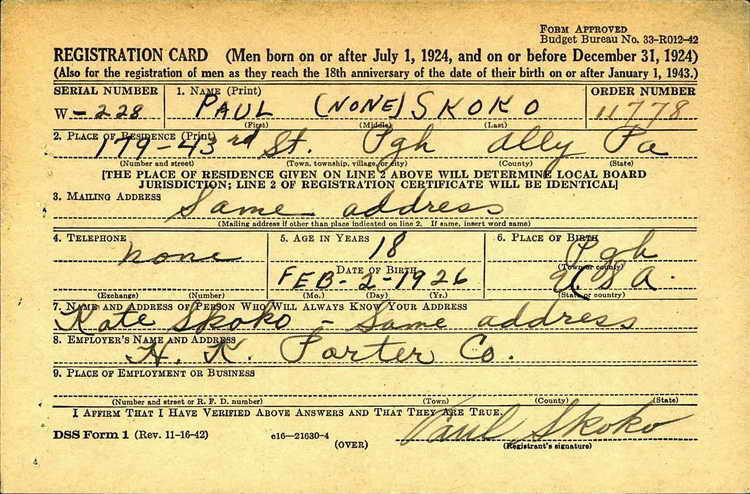 FORM APPROVED
Budget Bureau No. 33-R012-42
REGISTRATION CARD (Men born on or after July 1, 1924, and on or before December 31, 1924)
(Also for the registration of men as they reach the 18th anniversary of the date of their birth on or after January 1, 1943.)
SERIAL NUMBER 1. NAME (Print) ORDER NUMBER
W-228 PAUL (NONE) SKOKO 11778
(First) (Middle) (Last)
2. PLACE OF RESIDENCE (Print)
179-43rd St. Pgh Ally Pa
(Number and street) (Town, township, village, or city) (County) (State)
[THE PLACE OF RESIDENCE GIVEN ON LINE 2 ABOVE WILL DETERMINE LOCAL BOARD
JURISDICTION; LINE 2 OF REGISTRATION CERTIFICATE WILL BE IDENTICAL]
3. MAILING ADDRESS
Same address
(Mailing address if other than place indicated on line 2. If same, insert word same)
4. TELEPHONE 5. AGE IN YEARS 6. PLACE OF BIRTH
none 18 Pgh
DATE OF BIRTH (Town or county)
FEB-2-1926 U.S.A.
(Exchange) (Number) (Mo.) (Day) (Yr.) (State or country)
7. NAME AND ADDRESS OF PERSON WHO WILL ALWAYS KNOW YOUR ADDRESS
Kate Skoko - Same address
8. EMPLOYER'S NAME AND ADDRESS
H. K. Porter Co.
9. PLACE OF EMPLOYMENT OR BUSINESS
(Number and street or R. F. D. number) (Town) (County) (State)
I AFFIRM THAT I HAVE VERIFIED ABOVE ANSWERS AND THAT THEY ARE TRUE.
DSS Form 1 (Rev. 11-16-42) e16-21630-4 Paul Skoko
(OVER) (Registrant's signature)